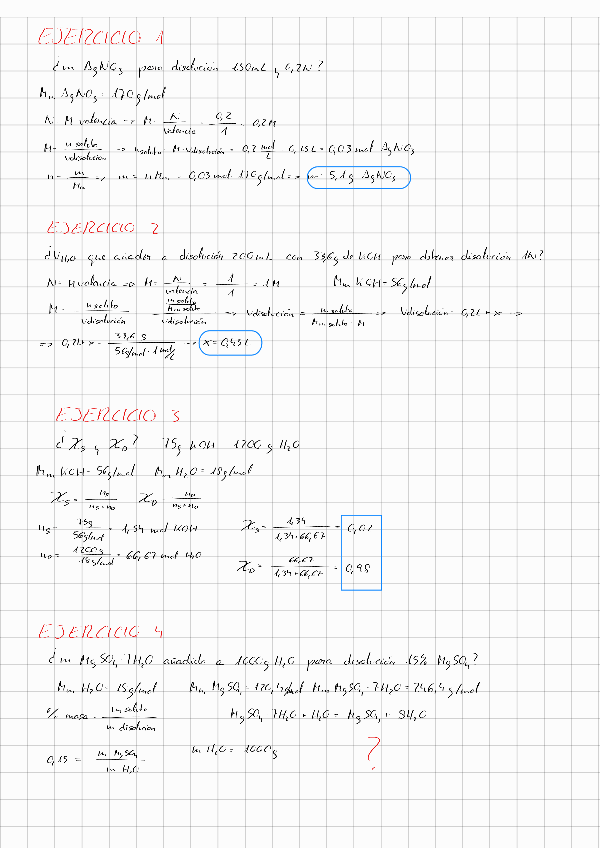 EJERCICIO 1
¿m AgNO3 para disolución 150mL y 0,2N?
Mm AgNO3 = 170g/mol
N = M·valencia => M = N/valencia = 0,2/1 = 0,2M
M = n soluto/V disolución -> n soluto = M·V disolución = 0,2 mol/L · 0,15L = 0,03 mol AgNO3
n = m/Mm => m = n·Mm = 0,03 mol · 170g/mol => m = 5,1g AgNO3
EJERCICIO 2
¿VH2O que añader a disolución 200mL con 33,6g de KOH para obtener disolución 1N?
N = M·valencia => M = N/valencia = 1/1 = 1M Mm KOH = 56g/mol
M = n soluto/V disolución = m soluto/Mm soluto/V disolución -> V disolución = m soluto/Mm soluto · M => V disolución = 0,2L + x =>
=> 0,2L + x = 33,6 g/56g/mol · 1 mol/L => x = 0,43 L
EJERCICIO 3
¿χs y χD? 75g KOH 1200g H2O
Mm KOH = 56g/mol Mm H2O = 18g/mol
χs = /ns+nD χD = nD/ns+nD
ns = 75g/56g/mol = 1,34 mol KOH χs = 1,34/1,34+66,67 = 0,02
nD = 1200g/18g/mol = 66,67 mol H2O χD = 66,67/1,34+66,67 = 0,98
EJERCICIO 4
¿m MgSO4·7H2O añadida a 1000g H2O para disolución 15% MgSO4?
Mm H2O = 18g/mol Mm MgSO4 = 120,4g/mol Mm MgSO4·7H2O = 246,4g/mol
% masa = m soluto/m disolución MgSO4·7H2O + H2O = MgSO4 + 8H2O
0,15 = m MgSO4/m H2O m H2O = 1000g ?